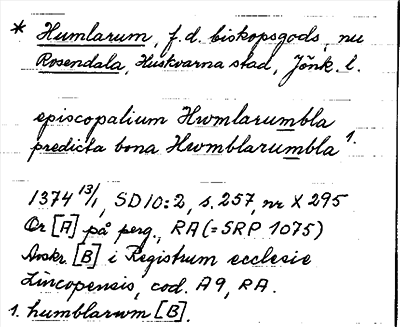 * Humlarum, f.d. biskopsgods, nu
Rosendala, Huskvarna stad, Jönk. l.
episcopalium Hwmlarumbla
predicta bona Hwmblarumbla 1.
1374 13/1, SD 10:2, s. 257, nr X 295
Or [A] på perg., RA (= SRP 1075)
Avskr. [B] i Registrum ecclesie
Lincopensis, cod. A9, RA.
1. humblarwm [B].